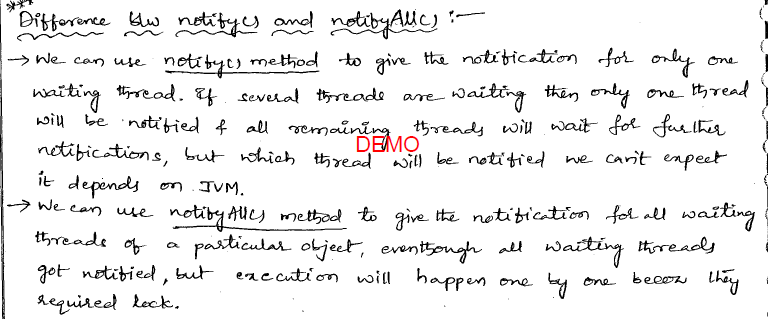 ***
Difference b/w notify() and notifyAll() :—
→ We can use notify() method to give the notification for only one
waiting thread. If several threads are waiting then only one thread
will be notified & all remaining threads will wait for further
DEMO
notifications, but which thread will be notified we can't expect
it depends on JVM.
→ We can use notifyAll() method to give the notification for all waiting
threads of a particular object, eventhough all waiting threads
got notified, but execution will happen one by one becoz they
required lock.